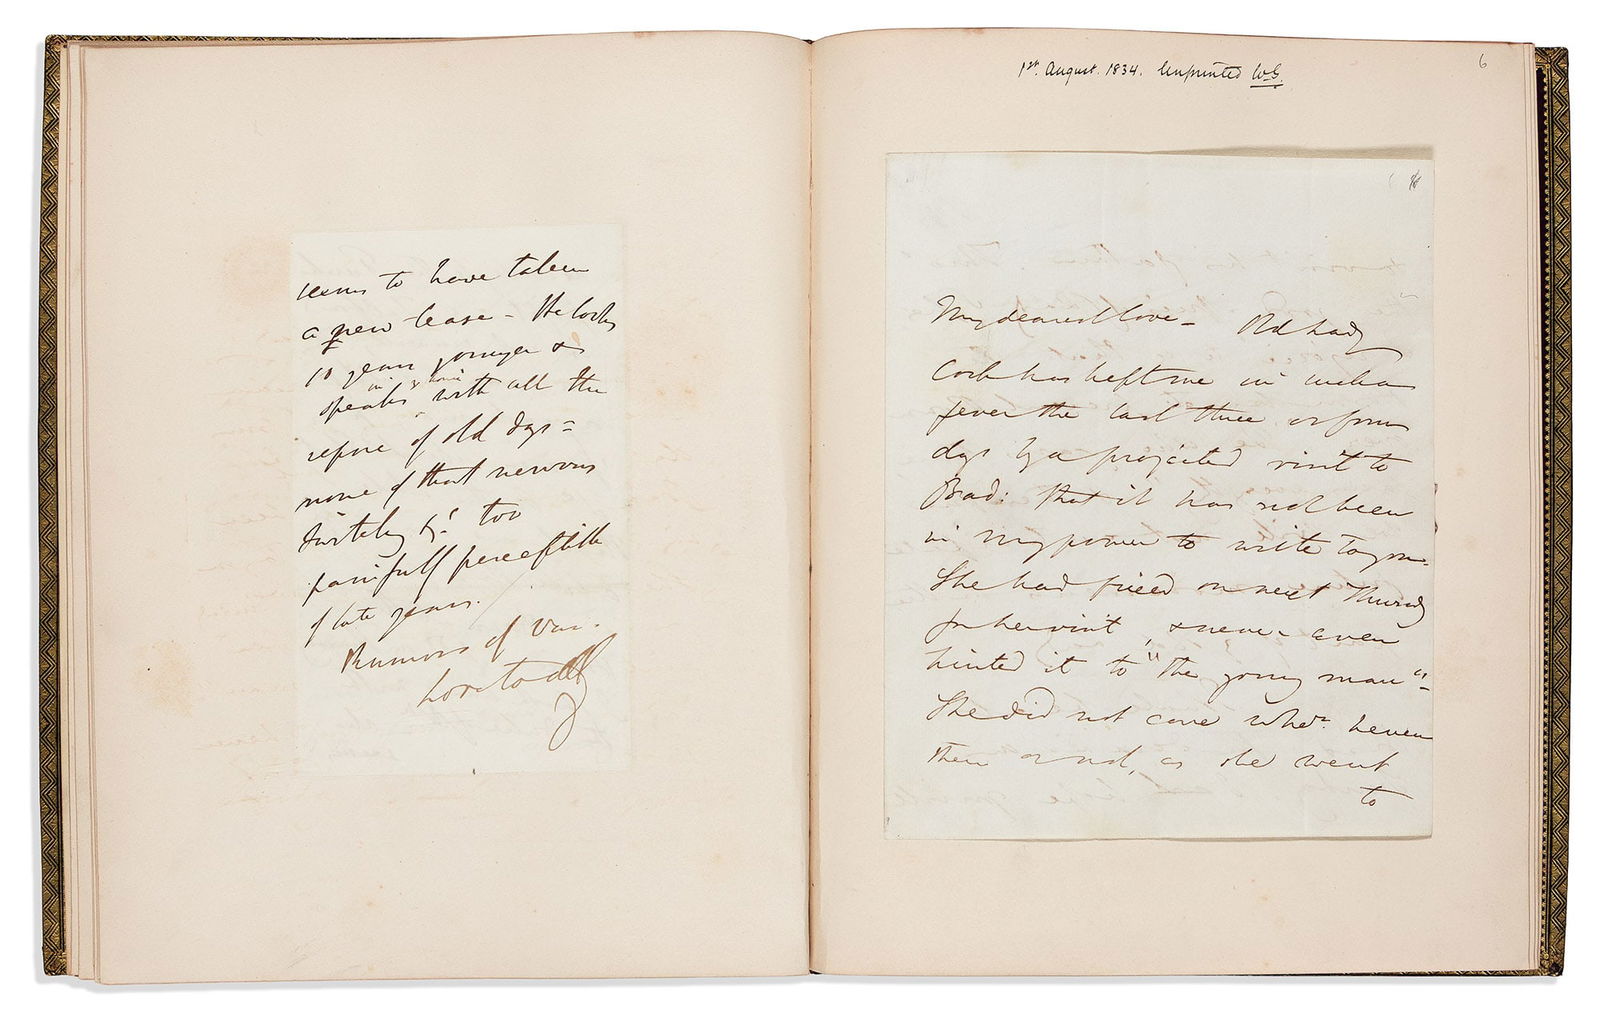 seems to have taken
a new lease - He looks
10 years younger &
in & tone
speaks with all the
repose of old days =
none of that nervous
&c! too
painfully perceptible
of late years.
Rumors of Var.
Love to all
1st. August. 1834. Unprinted W.G.
6
My dearest love - Old Lady
Cork has kept me in such a
fever the last three or four
days by a projected visit to
Brad: that it has not been
in my power to write to you.
She had fixed on next Thursdy
for her visit, & never even
hinted it to "the young man" -
She did not care whr. he were
there or not, as she went
to